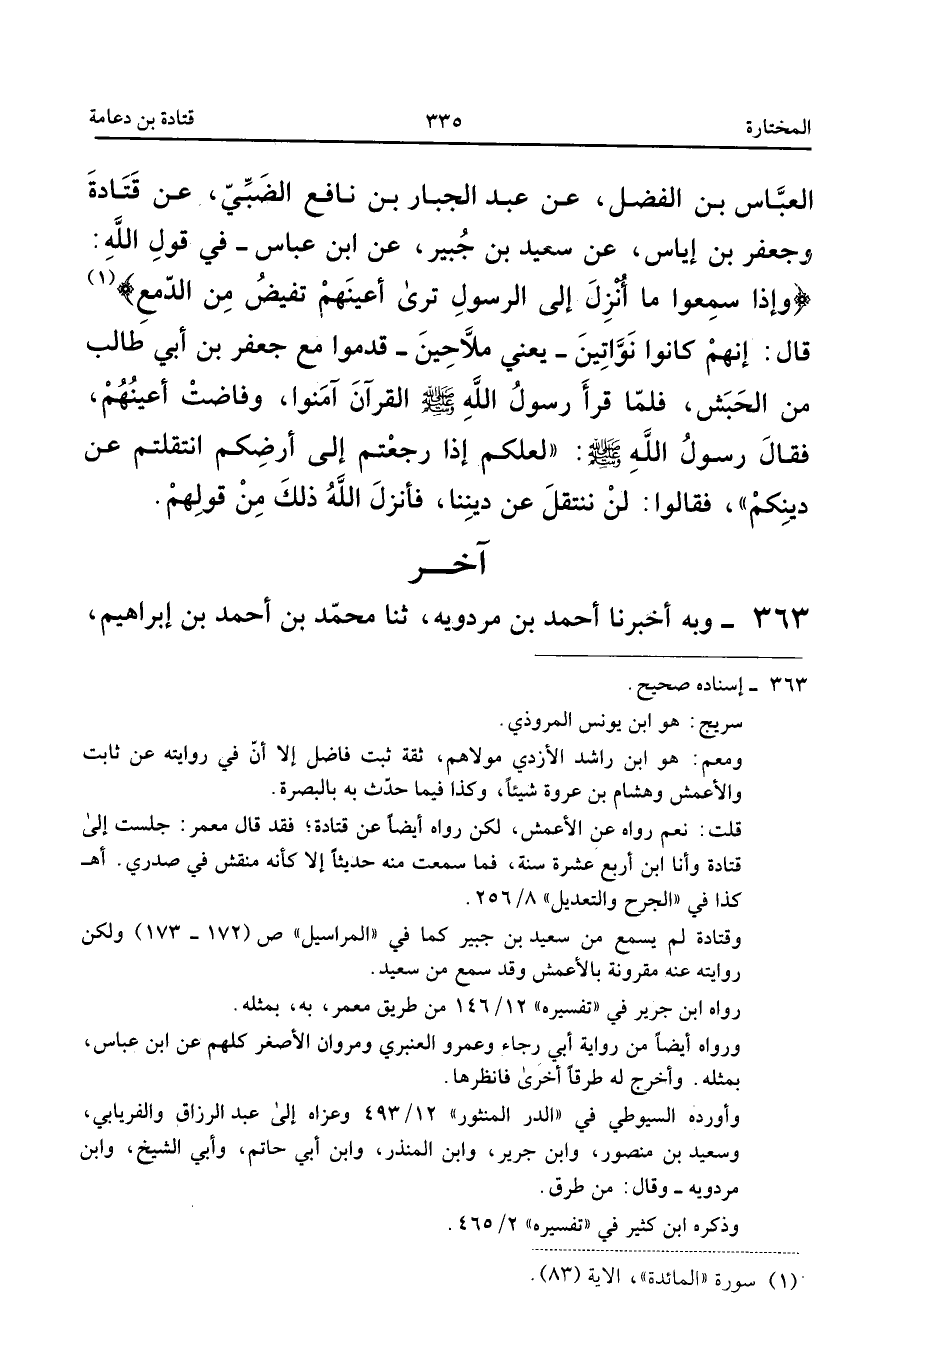 المختارة ٣٣٥ قتادة بن دعامة
العبَّاس بن الفضل، عن عبد الجبار بن نافع الضَبِّيّ، عن قَتَادةَ
وجعفر بن إياس، عن سعيد بن جُبير، عن ابن عباس - في قولِ اللَّهِ:
﴿وإذا سمِعوا ما أُنْزِلَ إلى الرسولِ ترىٰ أعينَهمْ تفيضُ مِن الدّمعِ﴾(١)
قال: إنهمْ كانوا نَوَّاتينَ - يعني ملاَّحينَ - قدموا مع جعفر بن أبي طالب
من الحَبَش، فلمّا قرأَ رسولُ اللَّهِ ﷺ القرآنَ آمَنوا، وفاضتْ أعينُهُمْ،
فقالَ رسولُ اللَّهِ ﷺ: «لعلكم إذا رجعْتم إلى أرضِكم انتقلتم عن
دينِكمْ»، فقالوا: لنْ ننتقلَ عن ديننِا، فأنزلَ اللَّهُ ذلكَ مِنْ قولِهمْ.
آخـــر
٣٦٣ - وبه أخبرنا أحمد بن مردويه، ثنا محمّد بن أحمد بن إبراهيم،
٣٦٣ - إسناده صحيح.
سريج: هو ابن يونس المروذي.
ومعم: هو ابن راشد الأزدي مولاهم، ثقة ثبت فاضل إلا أنّ في روايته عن ثابت
والأعمش وهشام بن عروة شيئاً، وكذا فيما حدّث به بالبصرة.
قلت: نعم رواه عن الأعمش، لكن رواه أيضاً عن قتادة؛ فقد قال معمر: جلست إلىٰ
قتادة وأنا ابن أربع عشرة سنة، فما سمعت منه حديثاً إلا كأنه منقش في صدري. أهـ
كذا في «الجرح والتعديل» ٨/٢٥٦.
وقتادة لم يسمع من سعيد بن جبير كما في «المراسيل» ص (١٧٢ - ١٧٣) ولكن
روايته عنه مقرونة بالأعمش وقد سمع من سعيد.
رواه ابن جرير في «تفسيره» ١٤٦/١٢ من طريق معمر، به، بمثله.
ورواه أيضاً من رواية أبي رجاء وعمرو العنبري ومروان الأصغر كلهم عن ابن عباس،
بمثله. وأخرج له طرقاً أخرىٰ فانظرها.
وأورده السيوطي في «الدر المنثور» ٤٩٣/١٢ وعزاه إلىٰ عبد الرزاق والفريابي،
وسعيد بن منصور، وابن جرير، وابن المنذر، وابن أبي حاتم، وأبي الشيخ، وابن
مردويه - وقال: من طرق.
وذكره ابن كثير في «تفسيره» ٤٦٥/٢.
(١) سورة «المائدة»، الاية (٨٣).